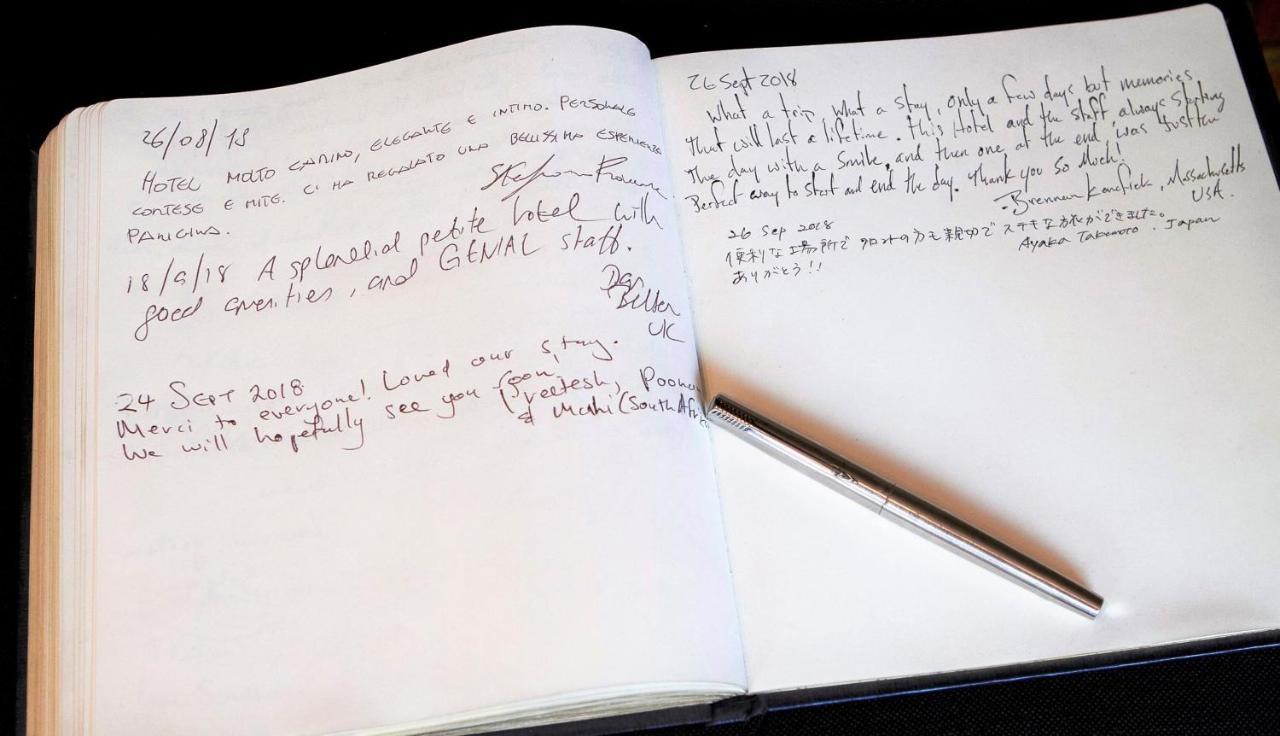 26/08/18
HOTEL MOLTO CARINO, ELEGANTE E INTIMO. PERSONALE
CORTESE E MITE. CI HA REGALATO UNA BELLISSIMA ESPERIENZA
PARIGINA.
18/9/18 A splendid petite hotel with
good amenities, and GENIAL staff.
Dan
UK
24 SEPT 2018
Merci to everyone! Loved our stay.
We will hopefully see you soon,
Preetesh, Poonam
& Mahi (South Afri
26 Sept 2018
What a trip, what a stay, only a few days but memories
that will last a lifetime. This Hotel and the staff, always starting
the day with a smile, and then one at the end, was just the
perfect way to start and end the day. Thank you so much!
- Brennan, Massachusetts
USA.
26 Sep 2018
便利な場所でフロントの方も親切でステキな旅ができました。
ありがとう!!
Ayaka Takemoto. Japan